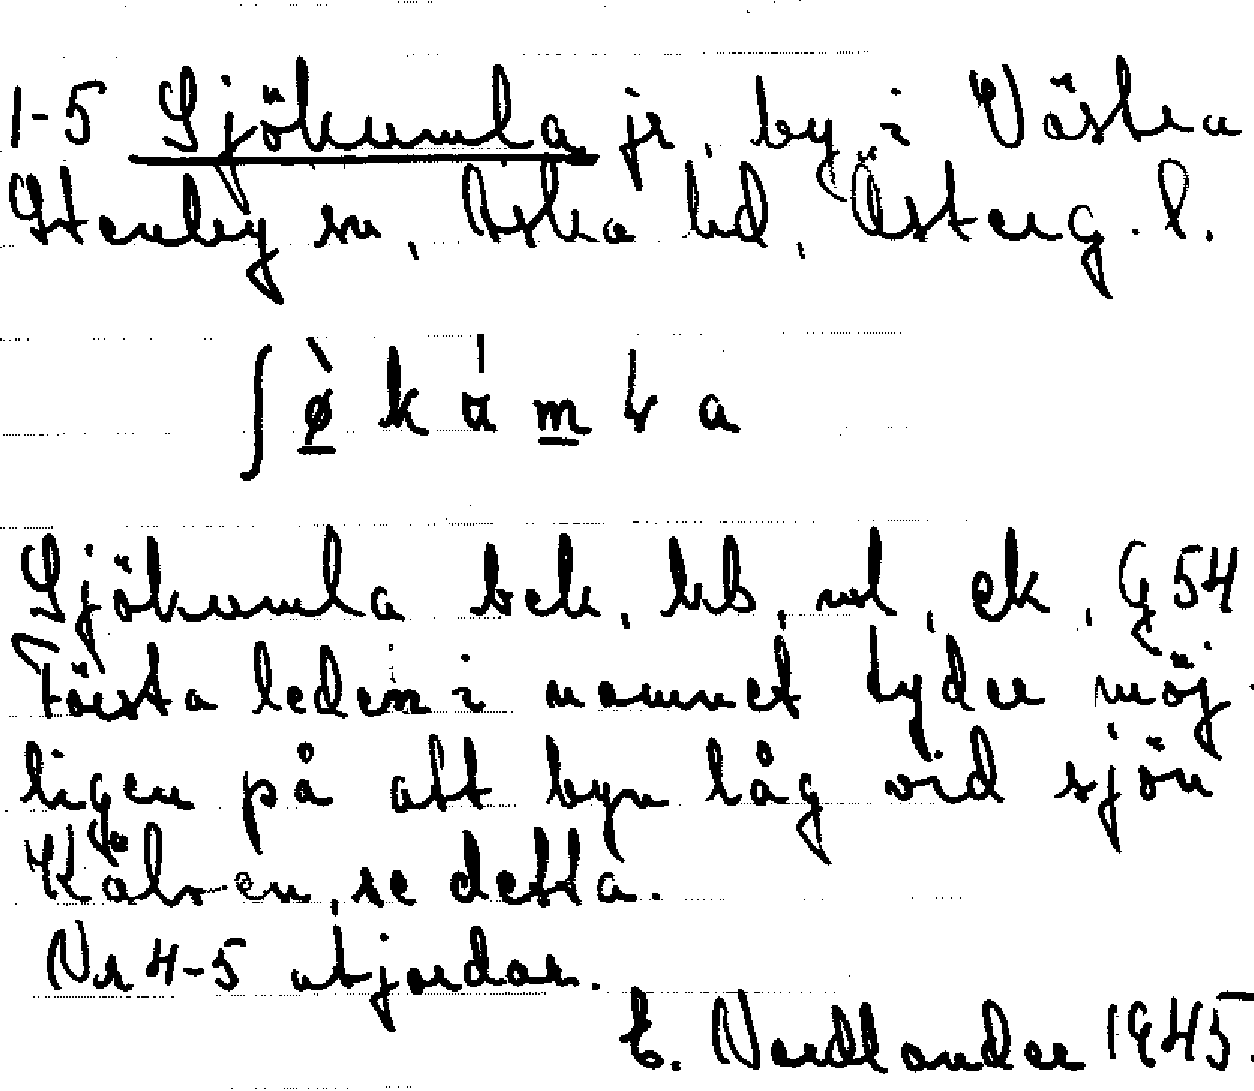 1-5 Sjökumla jr, by i Västra
Stenby sn, Aska hd, Österg. l.
Sjökumla bek, kb, ml, ek, G 54
Första leden i namnet tyder möj-
ligen på att byn låg vid sjön
Kälven, se detta.
Nr 4-5 utjordar.
E. Nordlander 1945.